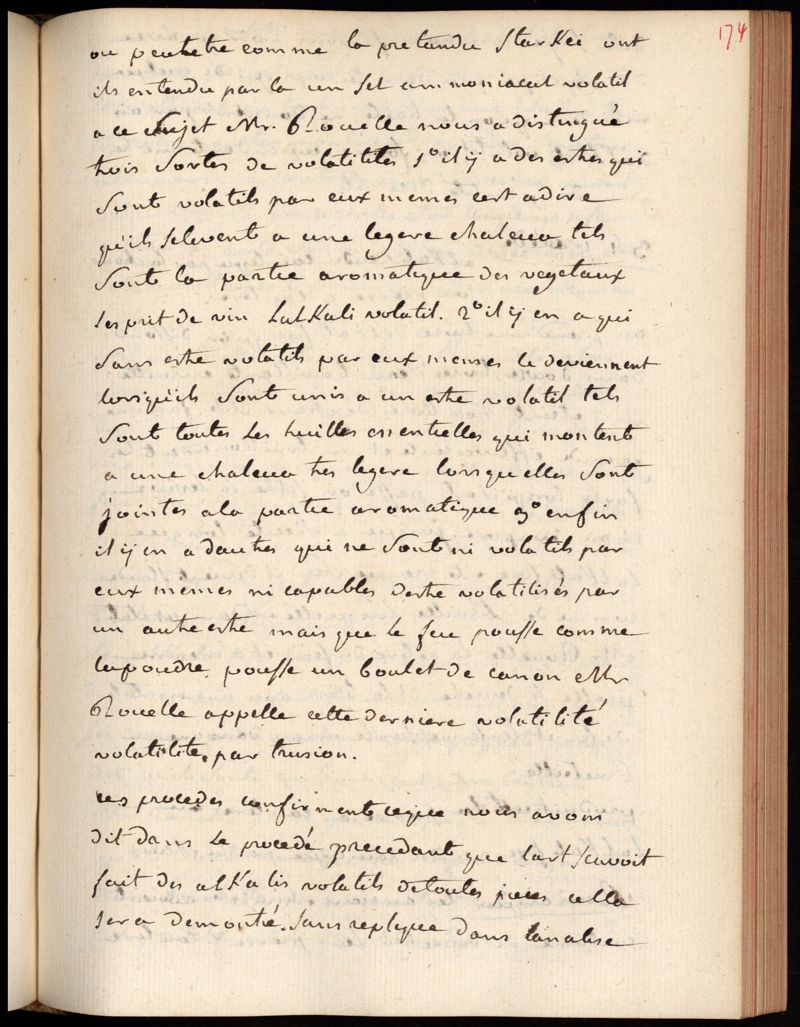 174
ou peutetre comme le pretendu Starkei ont
ils entendu par la un sel ammoniacal volatil
a ce sujet Mr. Rouelle nous a distingué
trois sortes de volatilités 1° il ÿ a des estres qui
sont volatils par eux memes cest adire
qu'ils selevent a une legere chaleur tels
sont la partie aromatique des vegetaux
lesprit de vin Lalkali volatil. 2° il ÿ en a qui
sans estre volatils par eux memes le deviennent
lorsqu'ils sont unis a un estre volatil tels
sont toutes Les huilles essentielles qui montent
a une chaleur tres legere lorsquelles sont
jointes ala partie aromatique 3° enfin
il ÿ en a dautres qui ne sont ni volatils par
eux memes ni capables destre volatilisés par
un autre estre mais que Le feu pousse comme
lapoudre pousse un boulet de canon Mr
Rouelle appelle cette derniere volatilité
volatilité par trusion.
ces procedes confirment ceque nous avons
dit dans Le procedé precedant que lart scavoit
fait des alkalis volatils detoutes pieces cella
sera demontré. sans replique dans lanalise